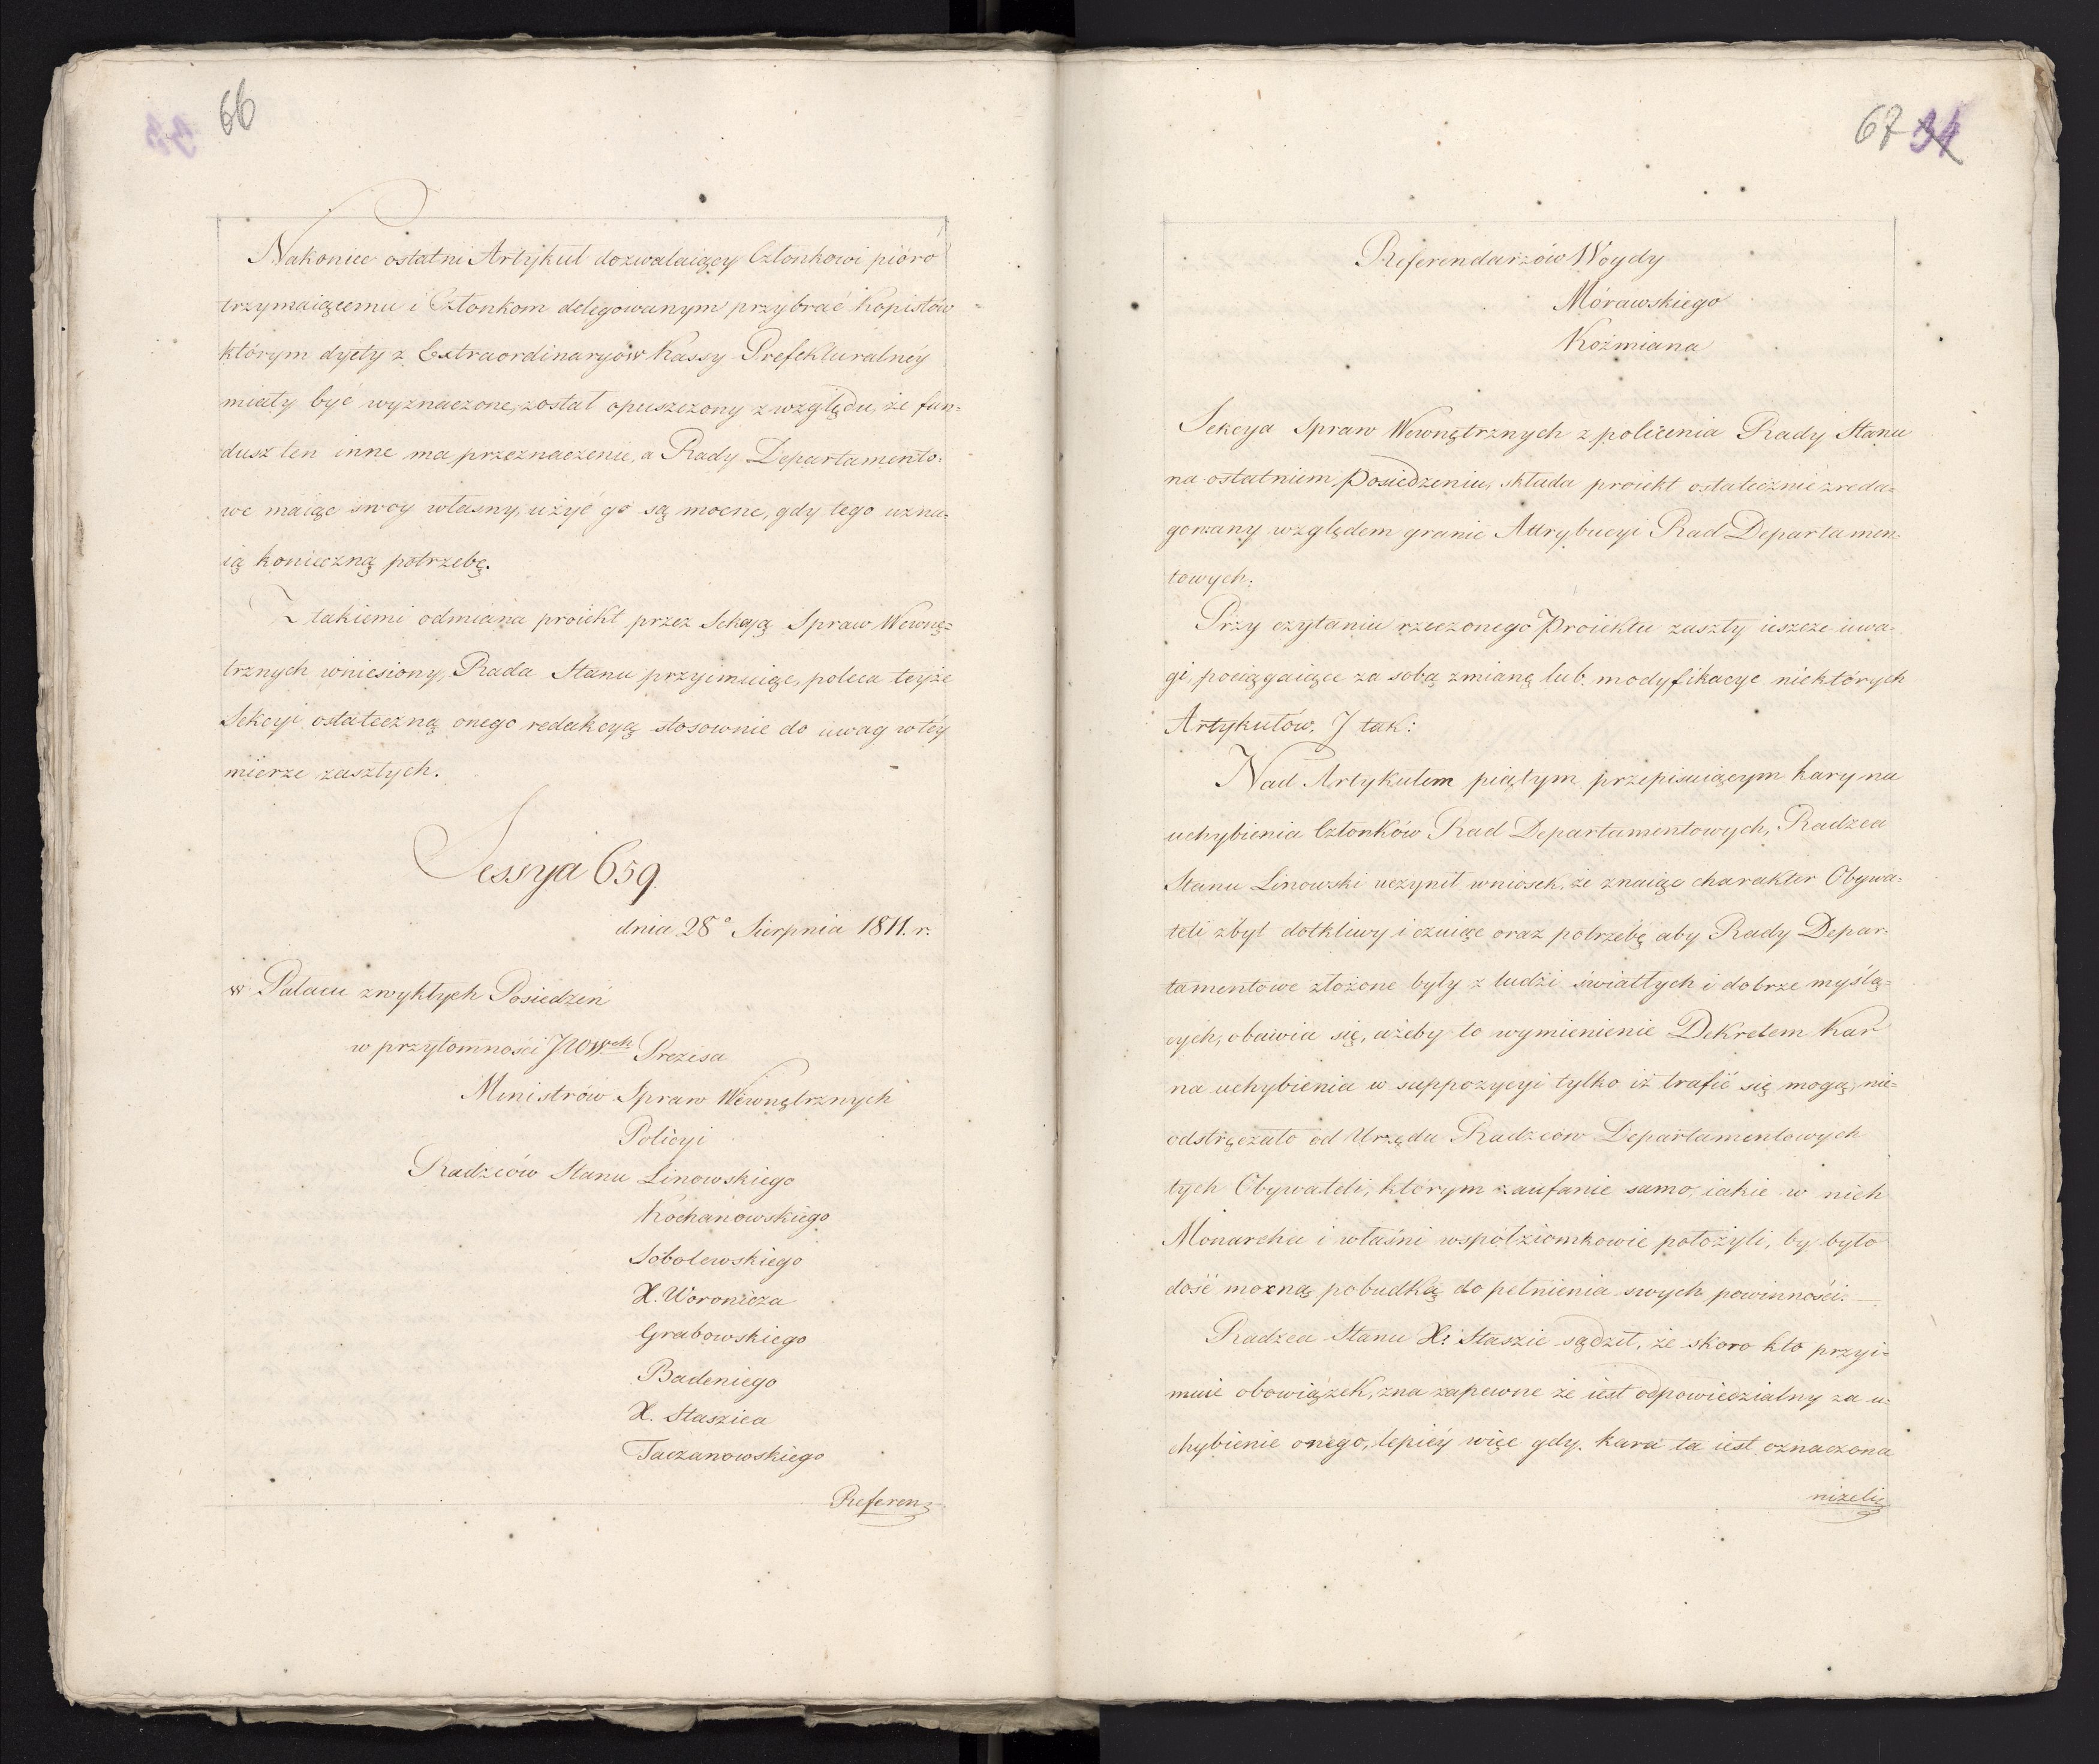 66
Nakoniec ostatni Artykuł dozwalaiący Członkowi pióro
trzymaiącemu i Członkom delegowanym przybrać kopistów
którym dyety z Extraordinaryów Kassy Prefekturalnéy
miały być wyznaczone, został opuszczony z względu, że fun=
dusz ten inne ma przeznaczenie, a Rady Departamento=
we maiąc swoy własny, użyć go są mocne, gdy tego uzna=
ią konieczną potrzebę.
Z takiemi odmiana proiekt przez Sekcyą Spraw Wewnę=
trznych wniesiony, Rada Stanu przyimuiąc, poleca teyże
Sekcyi ostateczną onego redakcyą stosownie do uwag w téy
mierze zaszłych.
Sessya 659.
dnia 28° Sierpnia 1811. r.
w Pałacu zwykłych Posiedzeń
w przytomności JWW^ch Prezesa
Ministrów Spraw Wewnętrznych
Policyi
Radzców Stanu Linowskiego
Kochanowskiego
Sobolewskiego
X. Woronicza
Grabowskiego
Badeniego
X. Staszica
Taczanowskiego
Referen=
67 34
Referendarzów Woydy
Mórawskiego
Koźmiana
Sekcya Spraw Wewnętrznych z polécenia Rady Stanu
na ostatniem Posiedzeniu, składa proiekt ostatecznie zreda=
gowany względem granic Attrybucyi Rad Departamen=
towych.
Przy czytaniu rzeczonego Proiektu zaszły ieszcze uwa=
gi, pociągaiące za sobą zmianę lub modyfikacye niektórych
Artykułów. J tak:
Nad Artykułem piątym przepisuiącym kary na
uchybienia Członków Rad Departamentowych, Radzca
Stanu Linowski uczynił wniosek, że znaiąc charakter Obywa=
teli zbyt dotkliwy i czuiąc oraz potrzebę aby Rady Depar=
tamentowe złożone były z ludzi światłych i dobrze myślą=
cych, obawia się, ażeby to wymienienie Dekretem Kar
na uchybienia w suppozycyi tylko iż trafić się mogą, nie=
odstręczało od Urzędu Radzców Departamentowych
tych Obywateli, którym zaufanie samo, iakie w nich
Monarcha i właśni współziomkowie położyli, by było
dość mocną pobudką do pełnienia swych powinności. —
Radzca Stanu X: Staszic sądził, że skoro kto przyi=
muie obowiązek, zna zapewne że iest odpowiedzialny za u=
chybienie onego, lepiéy więc gdy kara ta iest oznaczona
niżeli